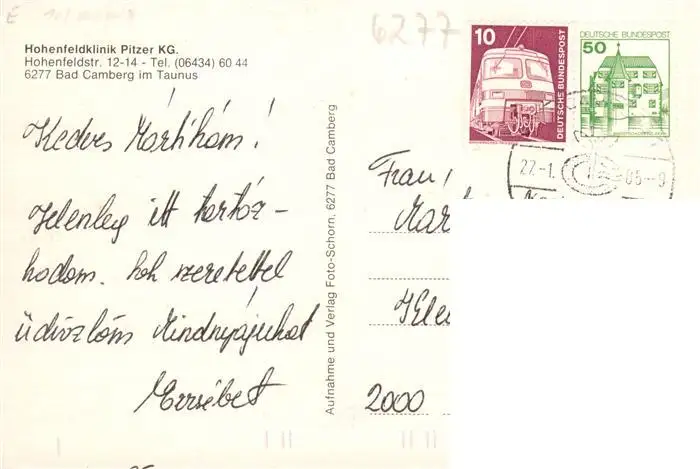 6277
Hohenfeldklinik Pitzer KG.
Hohenfeldstr. 12-14 - Tel. (06434) 60 44
6277 Bad Camberg im Taunus
Kedves Mártikám!
Jelenleg itt tartóz-
kodom. Sok szeretettel
üdvözlöm Mindnyájukat
Erzsébet
Aufnahme und Verlag Foto-Schorn, 6277 Bad Camberg
10
DEUTSCHE BUNDESPOST
DEUTSCHE BUNDESPOST
50
22-1.
85-9
Frau
2000